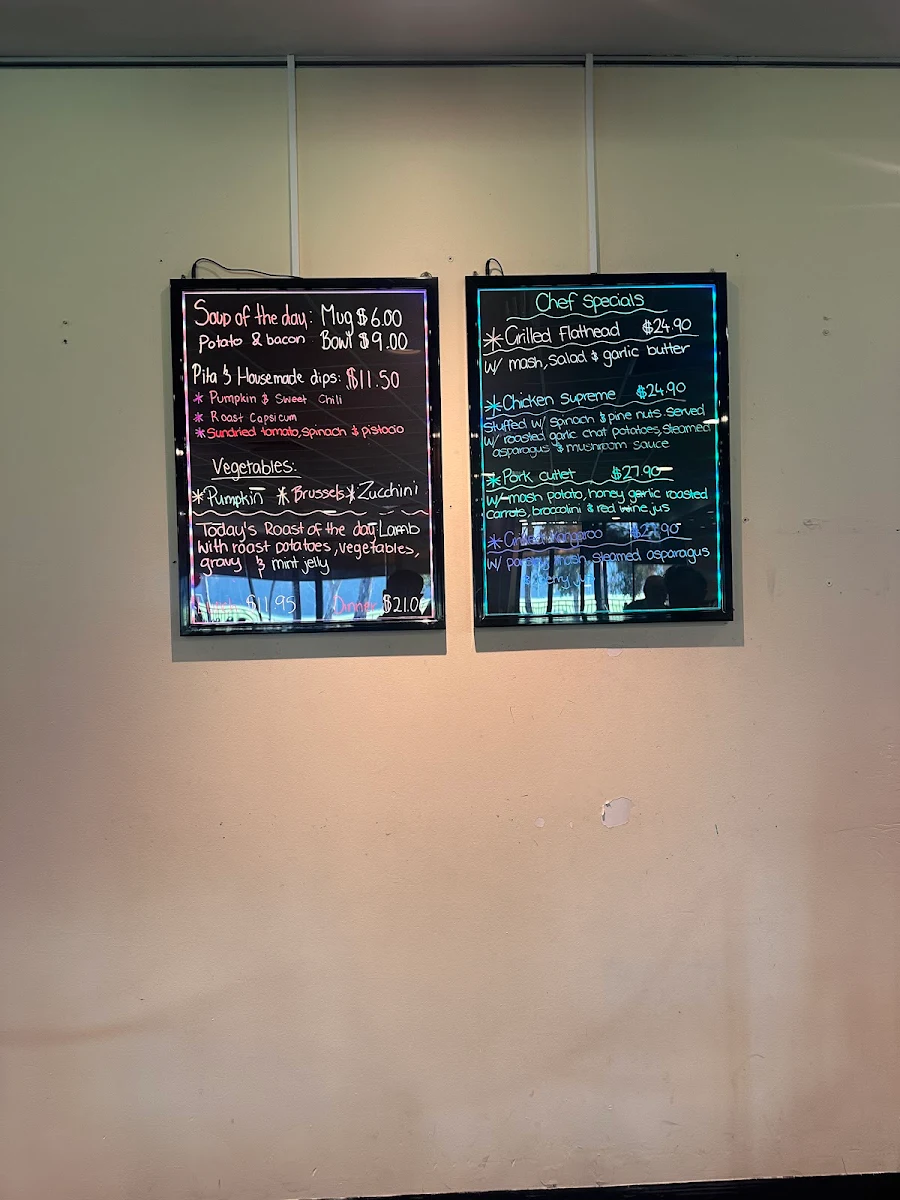 Soup of the day: Mug $6.00
Potato & bacon Bowl $9.00
Pita & Housemade dips: $11.50
* Pumpkin & Sweet Chili
* Roast Capsicum
* Sundried tomato, spinach & pistacio
Vegetables:
* Pumpkin * Brussels * Zucchini
Today's Roast of the day Lamb
with roast potatoes, vegetables,
gravy & mint jelly
$11.95 Dinner $21.00
Chef Specials
* Grilled Flathead $24.90
w/ mash, salad & garlic butter
* Chicken supreme $24.90
stuffed w/ spinach & pine nuts. Served
w/ roasted garlic chat potatoes, steamed
asparagus & mushroom sauce
* Pork cutlet $27.90
w/ mash potato, honey garlic roasted
carrots, broccolini & red wine jus
* Grilled Kangaroo
w/ mash, steamed asparagus